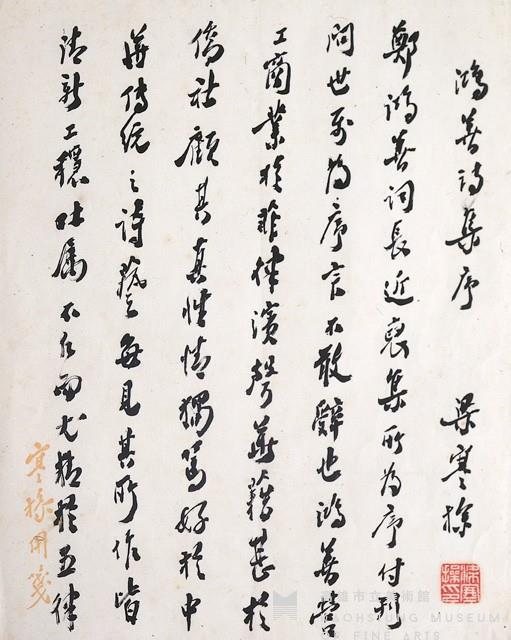 鴻善詩集序　梁寒操
鄭鴻善詞長近裒集所為序付刊
問世列為序言不敢辭也鴻善營
工商業於菲律濱聲華藉甚於
僑社顧其真性情獨篤好於中
華傳統之詩藝每見其所作皆
清新工穩吐屬不凡而尤精於五律
寒操用箋
高雄市立美術館
KAOHSIUNG MUSEUM
FINE ART